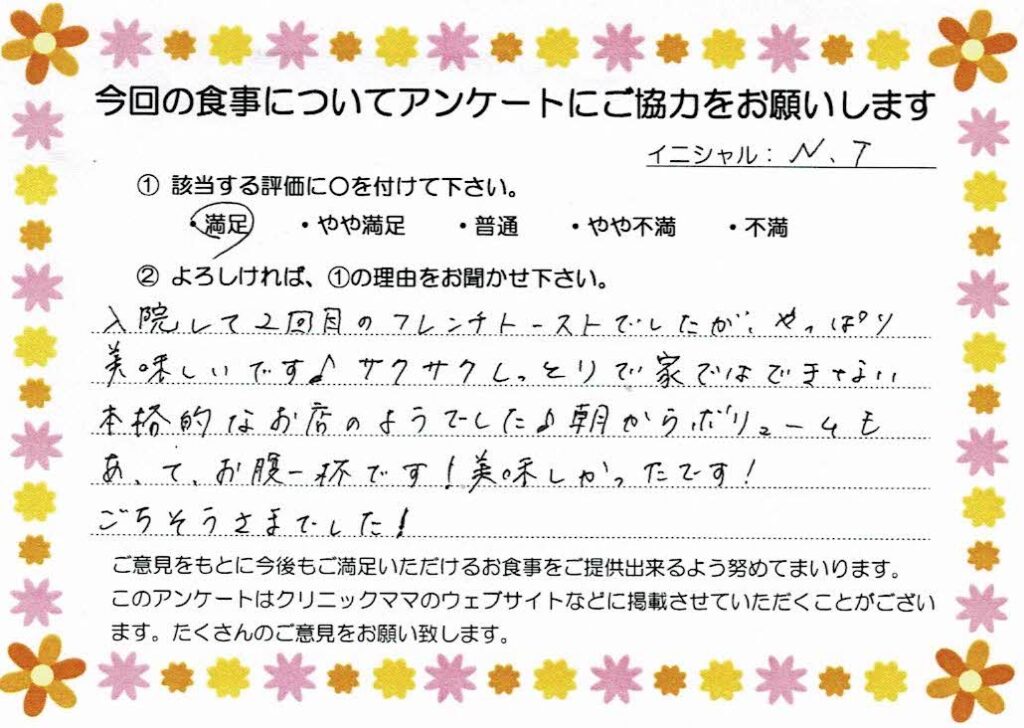 今回の食事についてアンケートにご協力をお願いします
イニシャル： N、T
① 該当する評価に○を付けて下さい。
・満足 ・やや満足 ・普通 ・やや不満 ・不満
② よろしければ、①の理由をお聞かせ下さい。
入院して2回目のフレンチトーストでしたが、やっぱり
美味しいです♪サクサクしっとりで家ではできない
本格的なお店のようでした♪朝からボリュームも
あって、お腹一杯です！美味しかったです！
ごちそうさまでした！
ご意見をもとに今後もご満足いただけるお食事をご提供出来るよう努めてまいります。
このアンケートはクリニックママのウェブサイトなどに掲載させていただくことがござい
ます。たくさんのご意見をお願い致します。